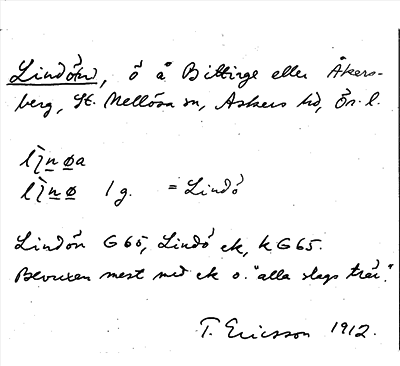 Lindön, ö å Bittinge eller Åkers-
berg, St. Mellösa sn, Askers hd, Ör. l.
1 g. = Lindö
Lindön G65, Lindö ek, kG65.
Bevuxen mest med ek o. "alla slags träd".
T. Ericsson 1912.